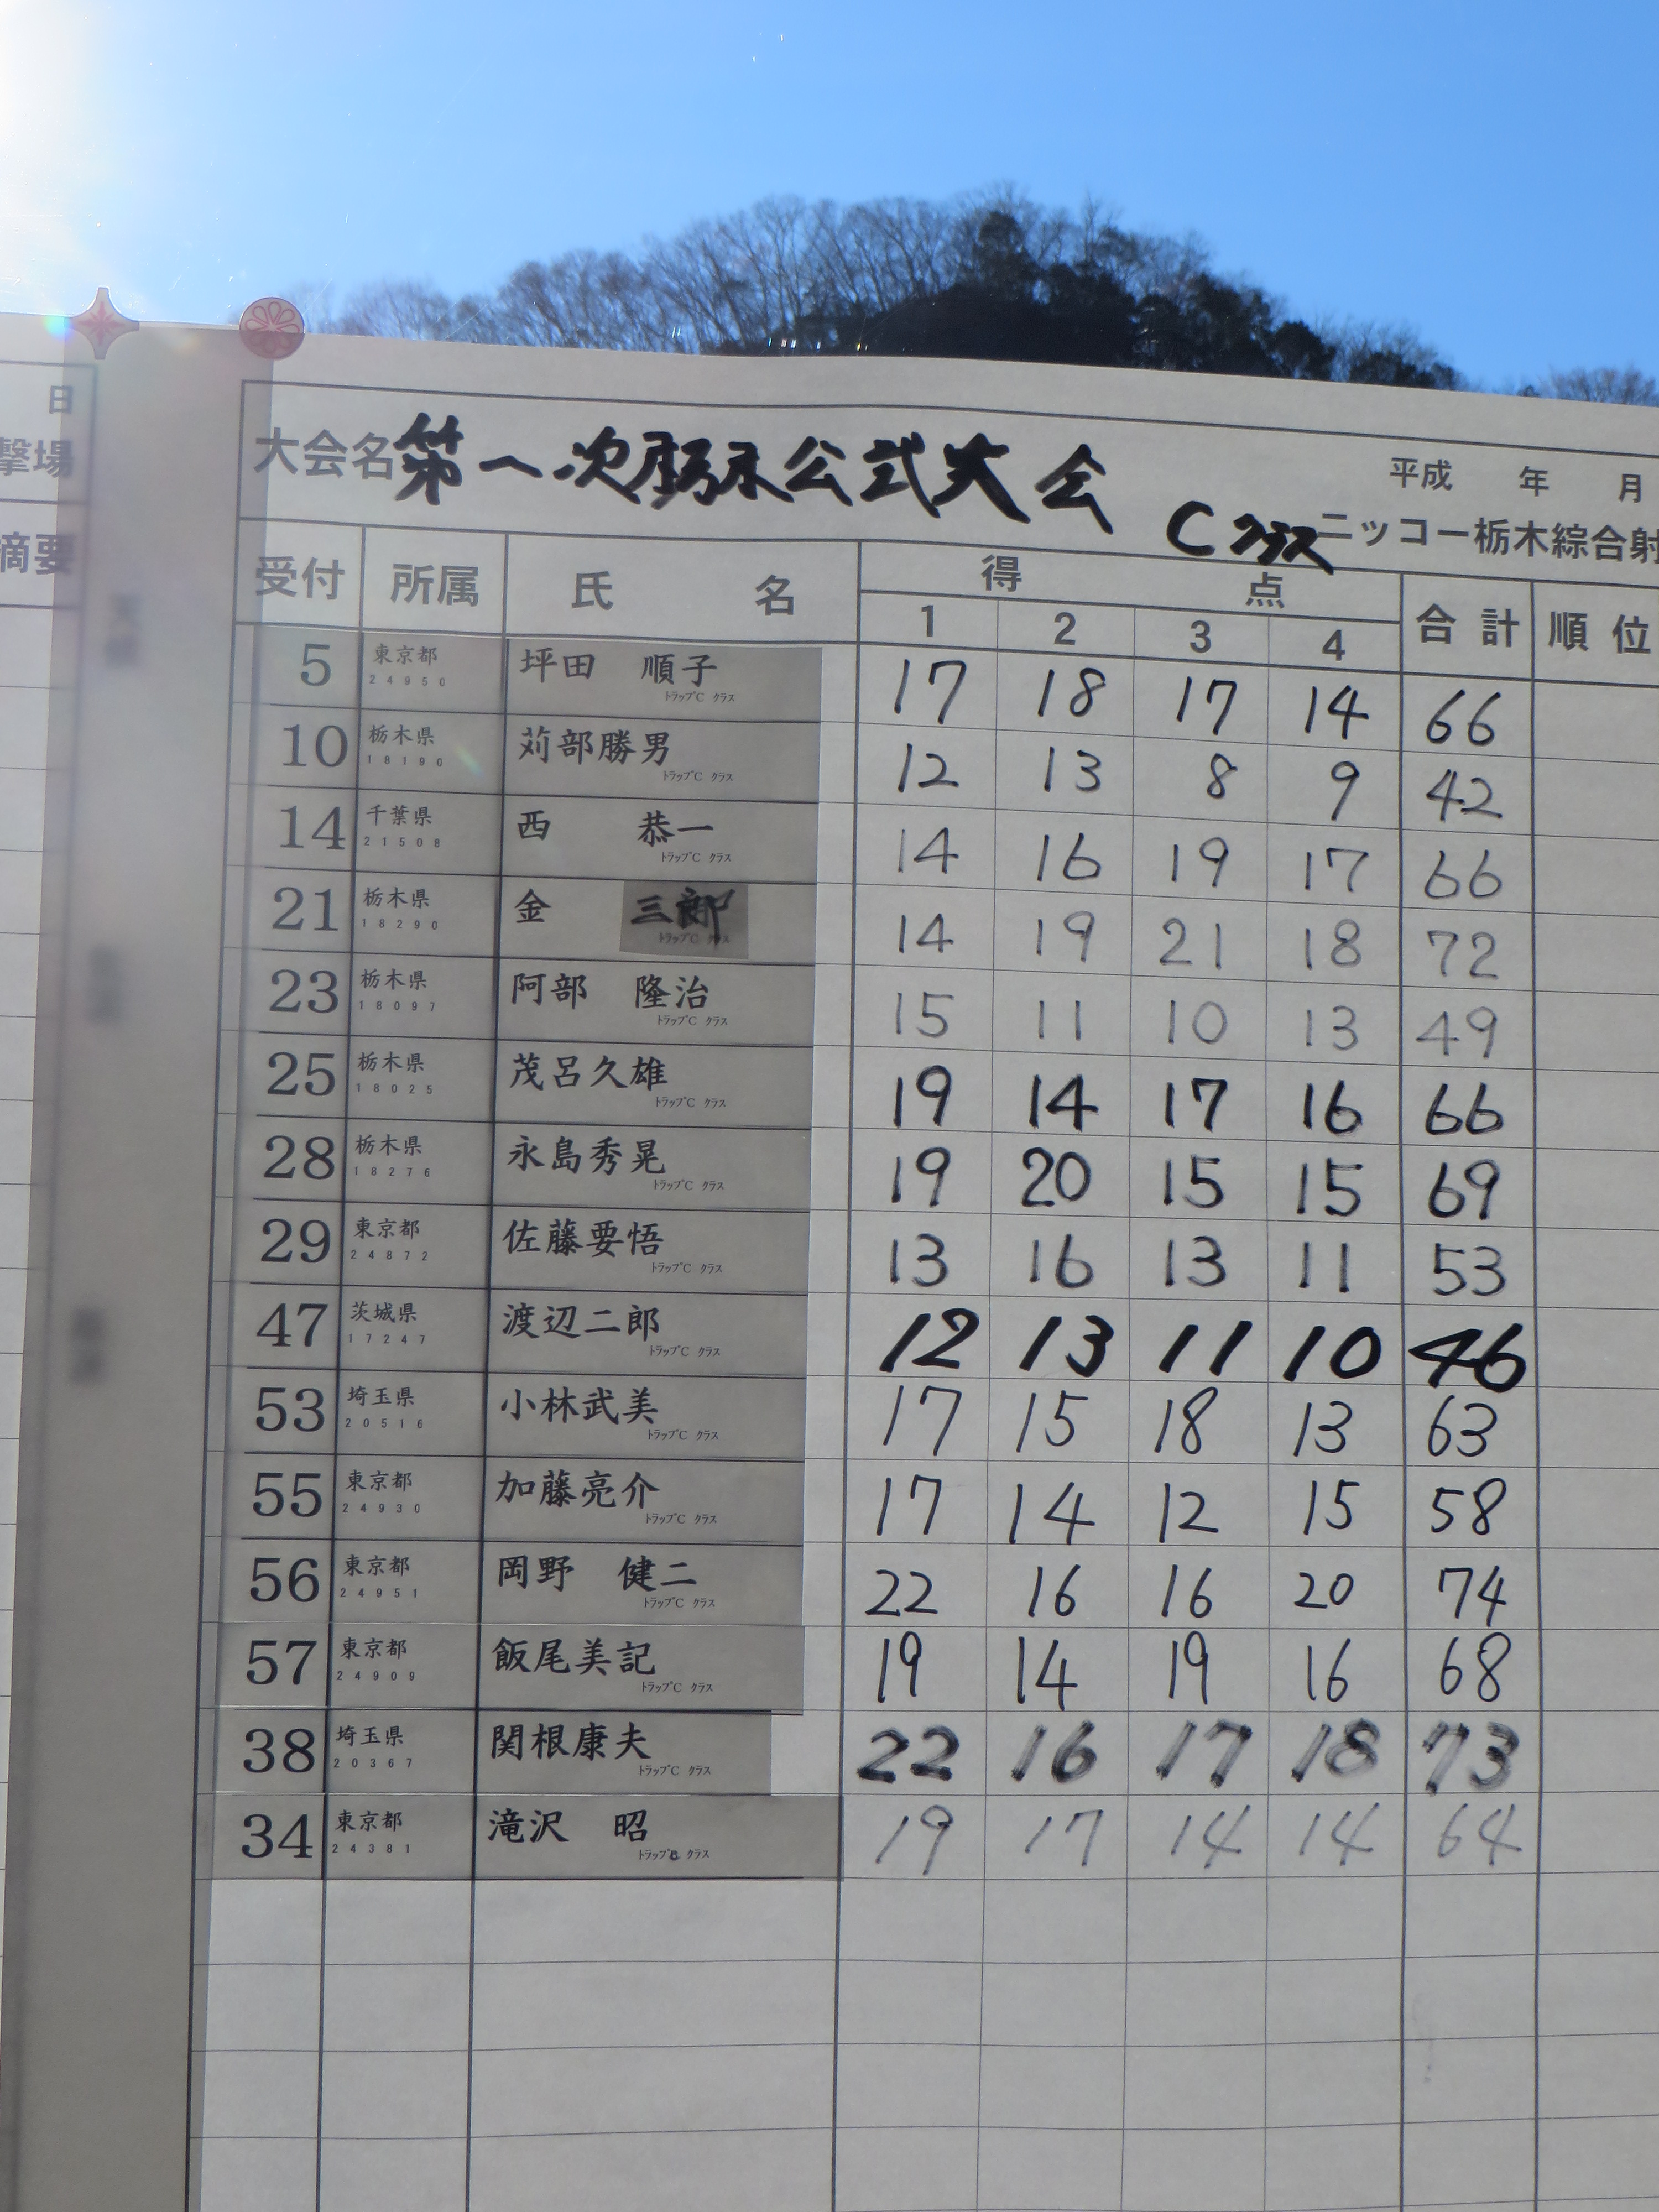 日
撃場
摘要
大会名 第一次栃木公式大会
平成 年 月
Cクラス
ニッコー栃木綜合射
受付 所属 氏 名 得 点 合計 順位
1 2 3 4
5 東京都 24950 坪田 順子 トラップC クラス 17 18 17 14 66
10 栃木県 18190 苅部勝男 トラップC クラス 12 13 8 9 42
14 千葉県 21508 西 恭一 トラップC クラス 14 16 19 17 66
21 栃木県 18290 金 三郎 トラップC クラス 14 19 21 18 72
23 栃木県 18097 阿部 隆治 トラップC クラス 15 11 10 13 49
25 栃木県 18025 茂呂久雄 トラップC クラス 19 14 17 16 66
28 栃木県 18276 永島秀晃 トラップC クラス 19 20 15 15 69
29 東京都 24872 佐藤要悟 トラップC クラス 13 16 13 11 53
47 茨城県 17247 渡辺二郎 トラップC クラス 12 13 11 10 46
53 埼玉県 20516 小林武美 トラップC クラス 17 15 18 13 63
55 東京都 24930 加藤亮介 トラップC クラス 17 14 12 15 58
56 東京都 24951 岡野 健二 トラップC クラス 22 16 16 20 74
57 東京都 24909 飯尾美記 トラップC クラス 19 14 19 16 68
38 埼玉県 20367 関根康夫 トラップC クラス 22 16 17 18 73
34 東京都 24381 滝沢 昭 トラップ クラス 19 17 14 14 64